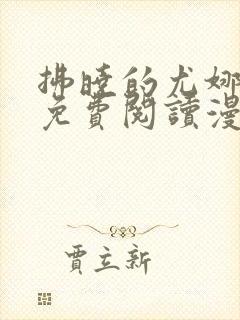 拂曉的尤娜
免費閱讀漫
賈立新